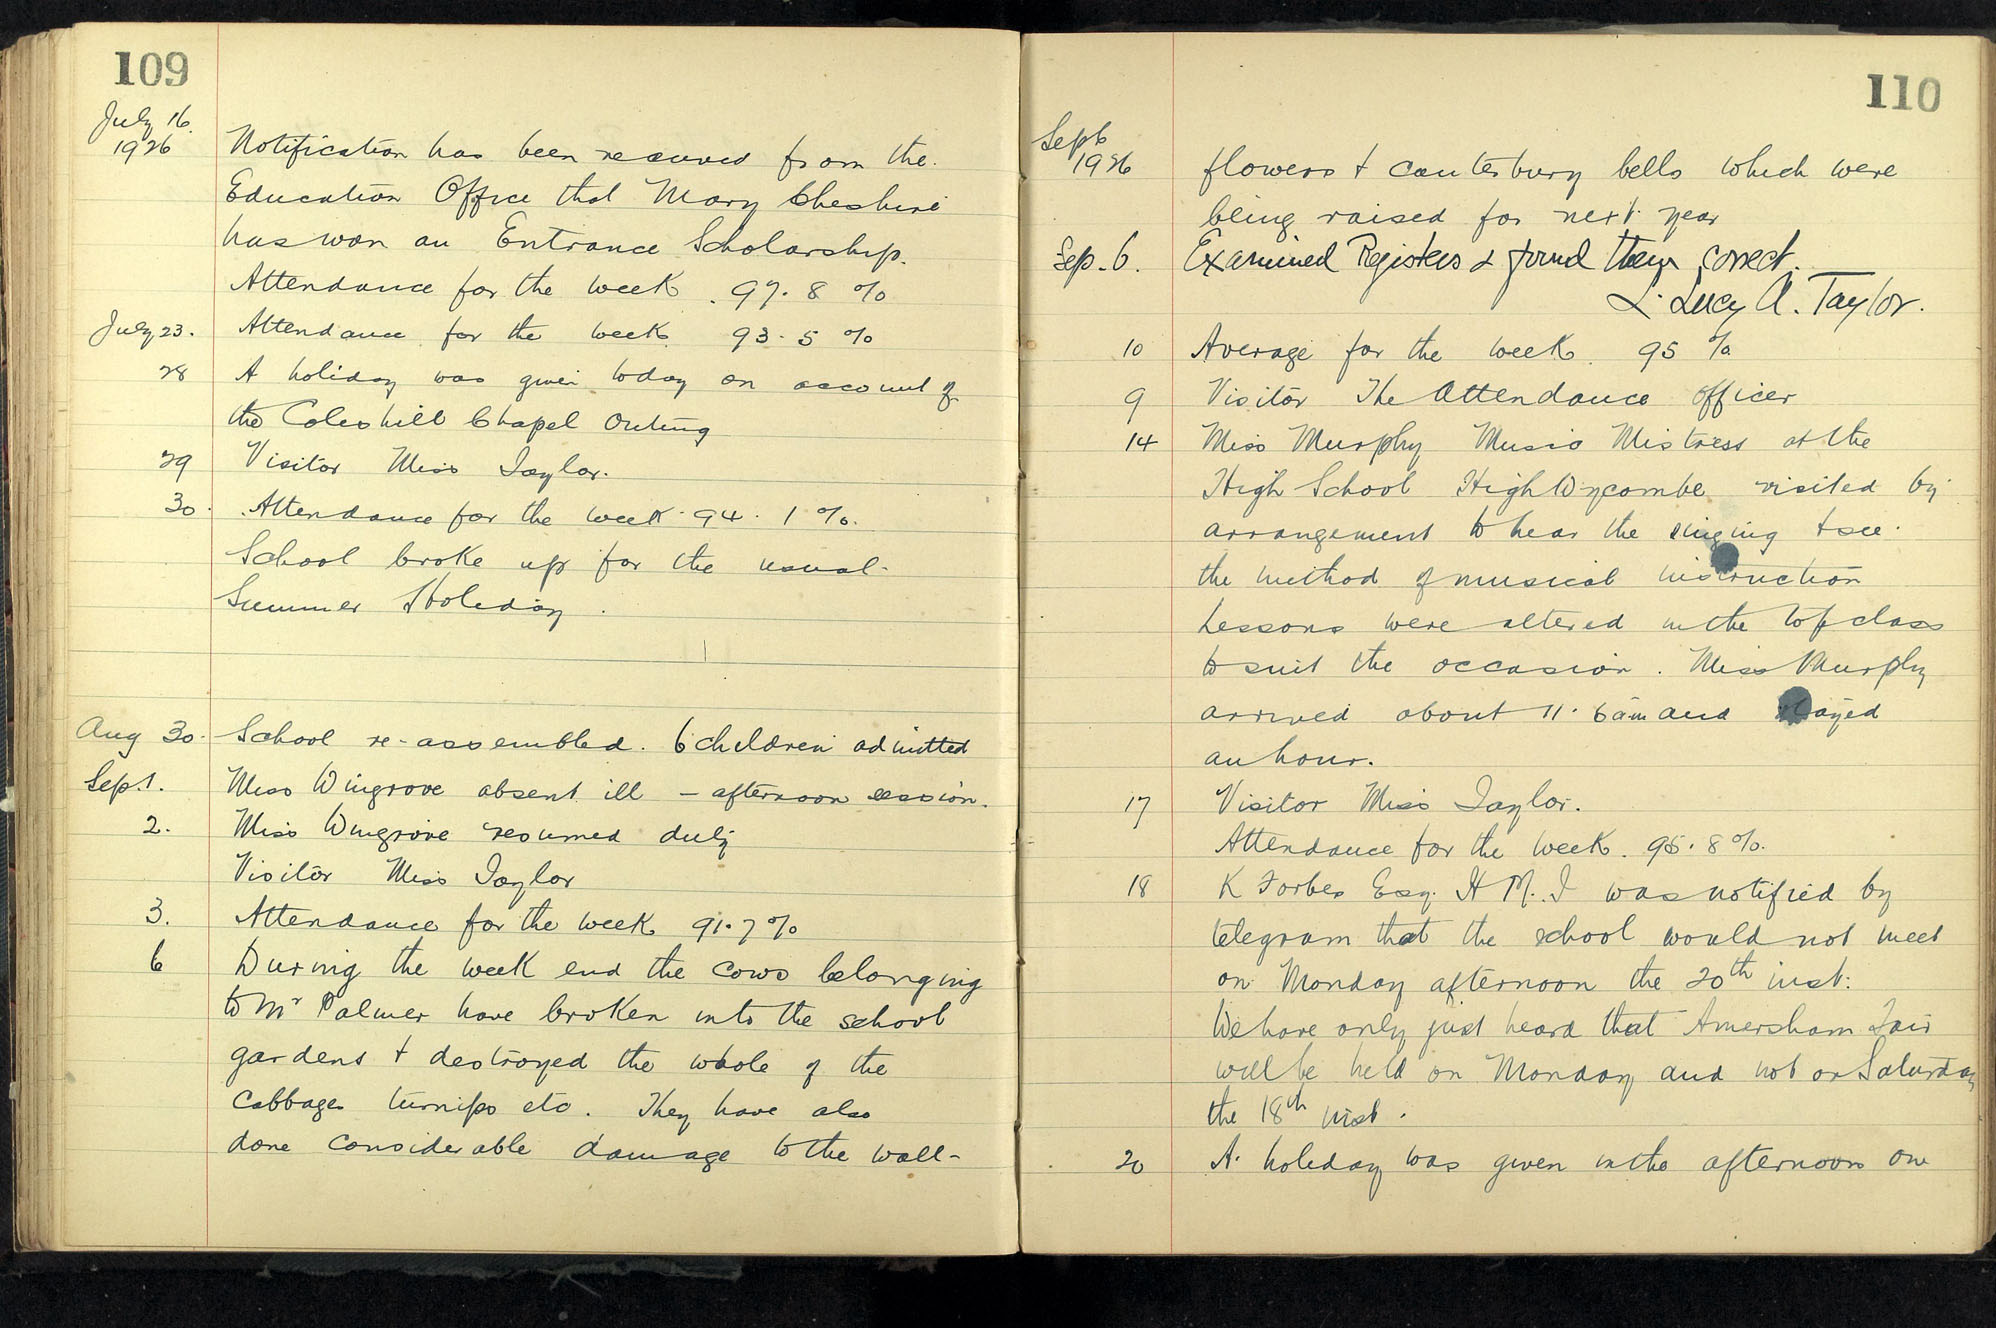 109
July 16.
1926
Notification has been received from the.
Education Office that Mary Cheshire
has won an Entrance Scholarship.
Attendance for the week . 97.8 %
July 23. Attendance for the week 93.5 %
28 A holiday was given today on account of
the Coleshill Chapel Outing
29 Visitor Miss Taylor.
30. Attendance for the week. 94.1 %.
School broke up for the usual
Summer Holiday.
Aug 30. School re-assembled. 6 children admitted
Sep.1. Miss Wingrove absent ill - afternoon session.
2. Miss Wingrove resumed duty
Visitor Miss Taylor
3. Attendance for the week 91.7 %
6 During the week end the cows belonging
to Mr Palmer have broken into the school
gardens + destroyed the whole of the
Cabbages turnips etc. They have also
done considerable damage to the wall-
110
Sept
1926
flowers + canterbury bells which were
being raised for next year
Sep. 6. Examined Registers & found them correct.
L. Lucy A. Taylor.
10 Average for the week. 95 %
9 Visitor The Attendance Officer
14 Miss Murphy Music Mistress at the
High School High Wycombe visited by
arrangement to hear the singing + see
the method of musical instruction
Lessons were altered in the top class
to suit the occasion. Miss Murphy
arrived about 11.6 am and stayed
an hour.
17 Visitor Miss Taylor.
Attendance for the week. 95.8 %.
18 K Forbes Esq. H.M.I was notified by
telegram that the school would not meet
on Monday afternoon the 20th inst:
We have only just heard that Amersham Fair
will be held on Monday and not on Saturday
the 18th inst.
20 A holiday was given in the afternoon on